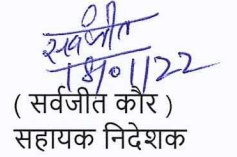 सर्वजीत
18/01/22
( सर्वजीत कौर )
सहायक निदेशक